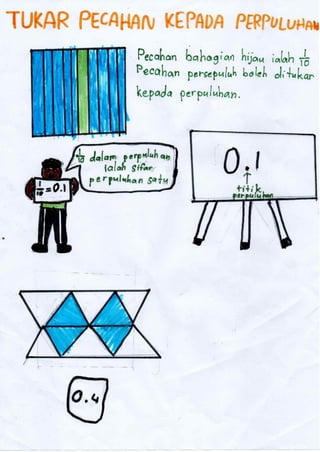 TUKAR PECAHAN KEPADA PERPULUHAN
Pecahan bahagian hijau ialah 1/10
Pecahan persepuluh boleh ditukar
kepada perpuluhan.
1/10 dalam perpuluhan
ialah sifar
perpuluhan satu
1/10 = 0.1
0.1
↑
titik
perpuluhan
0.4